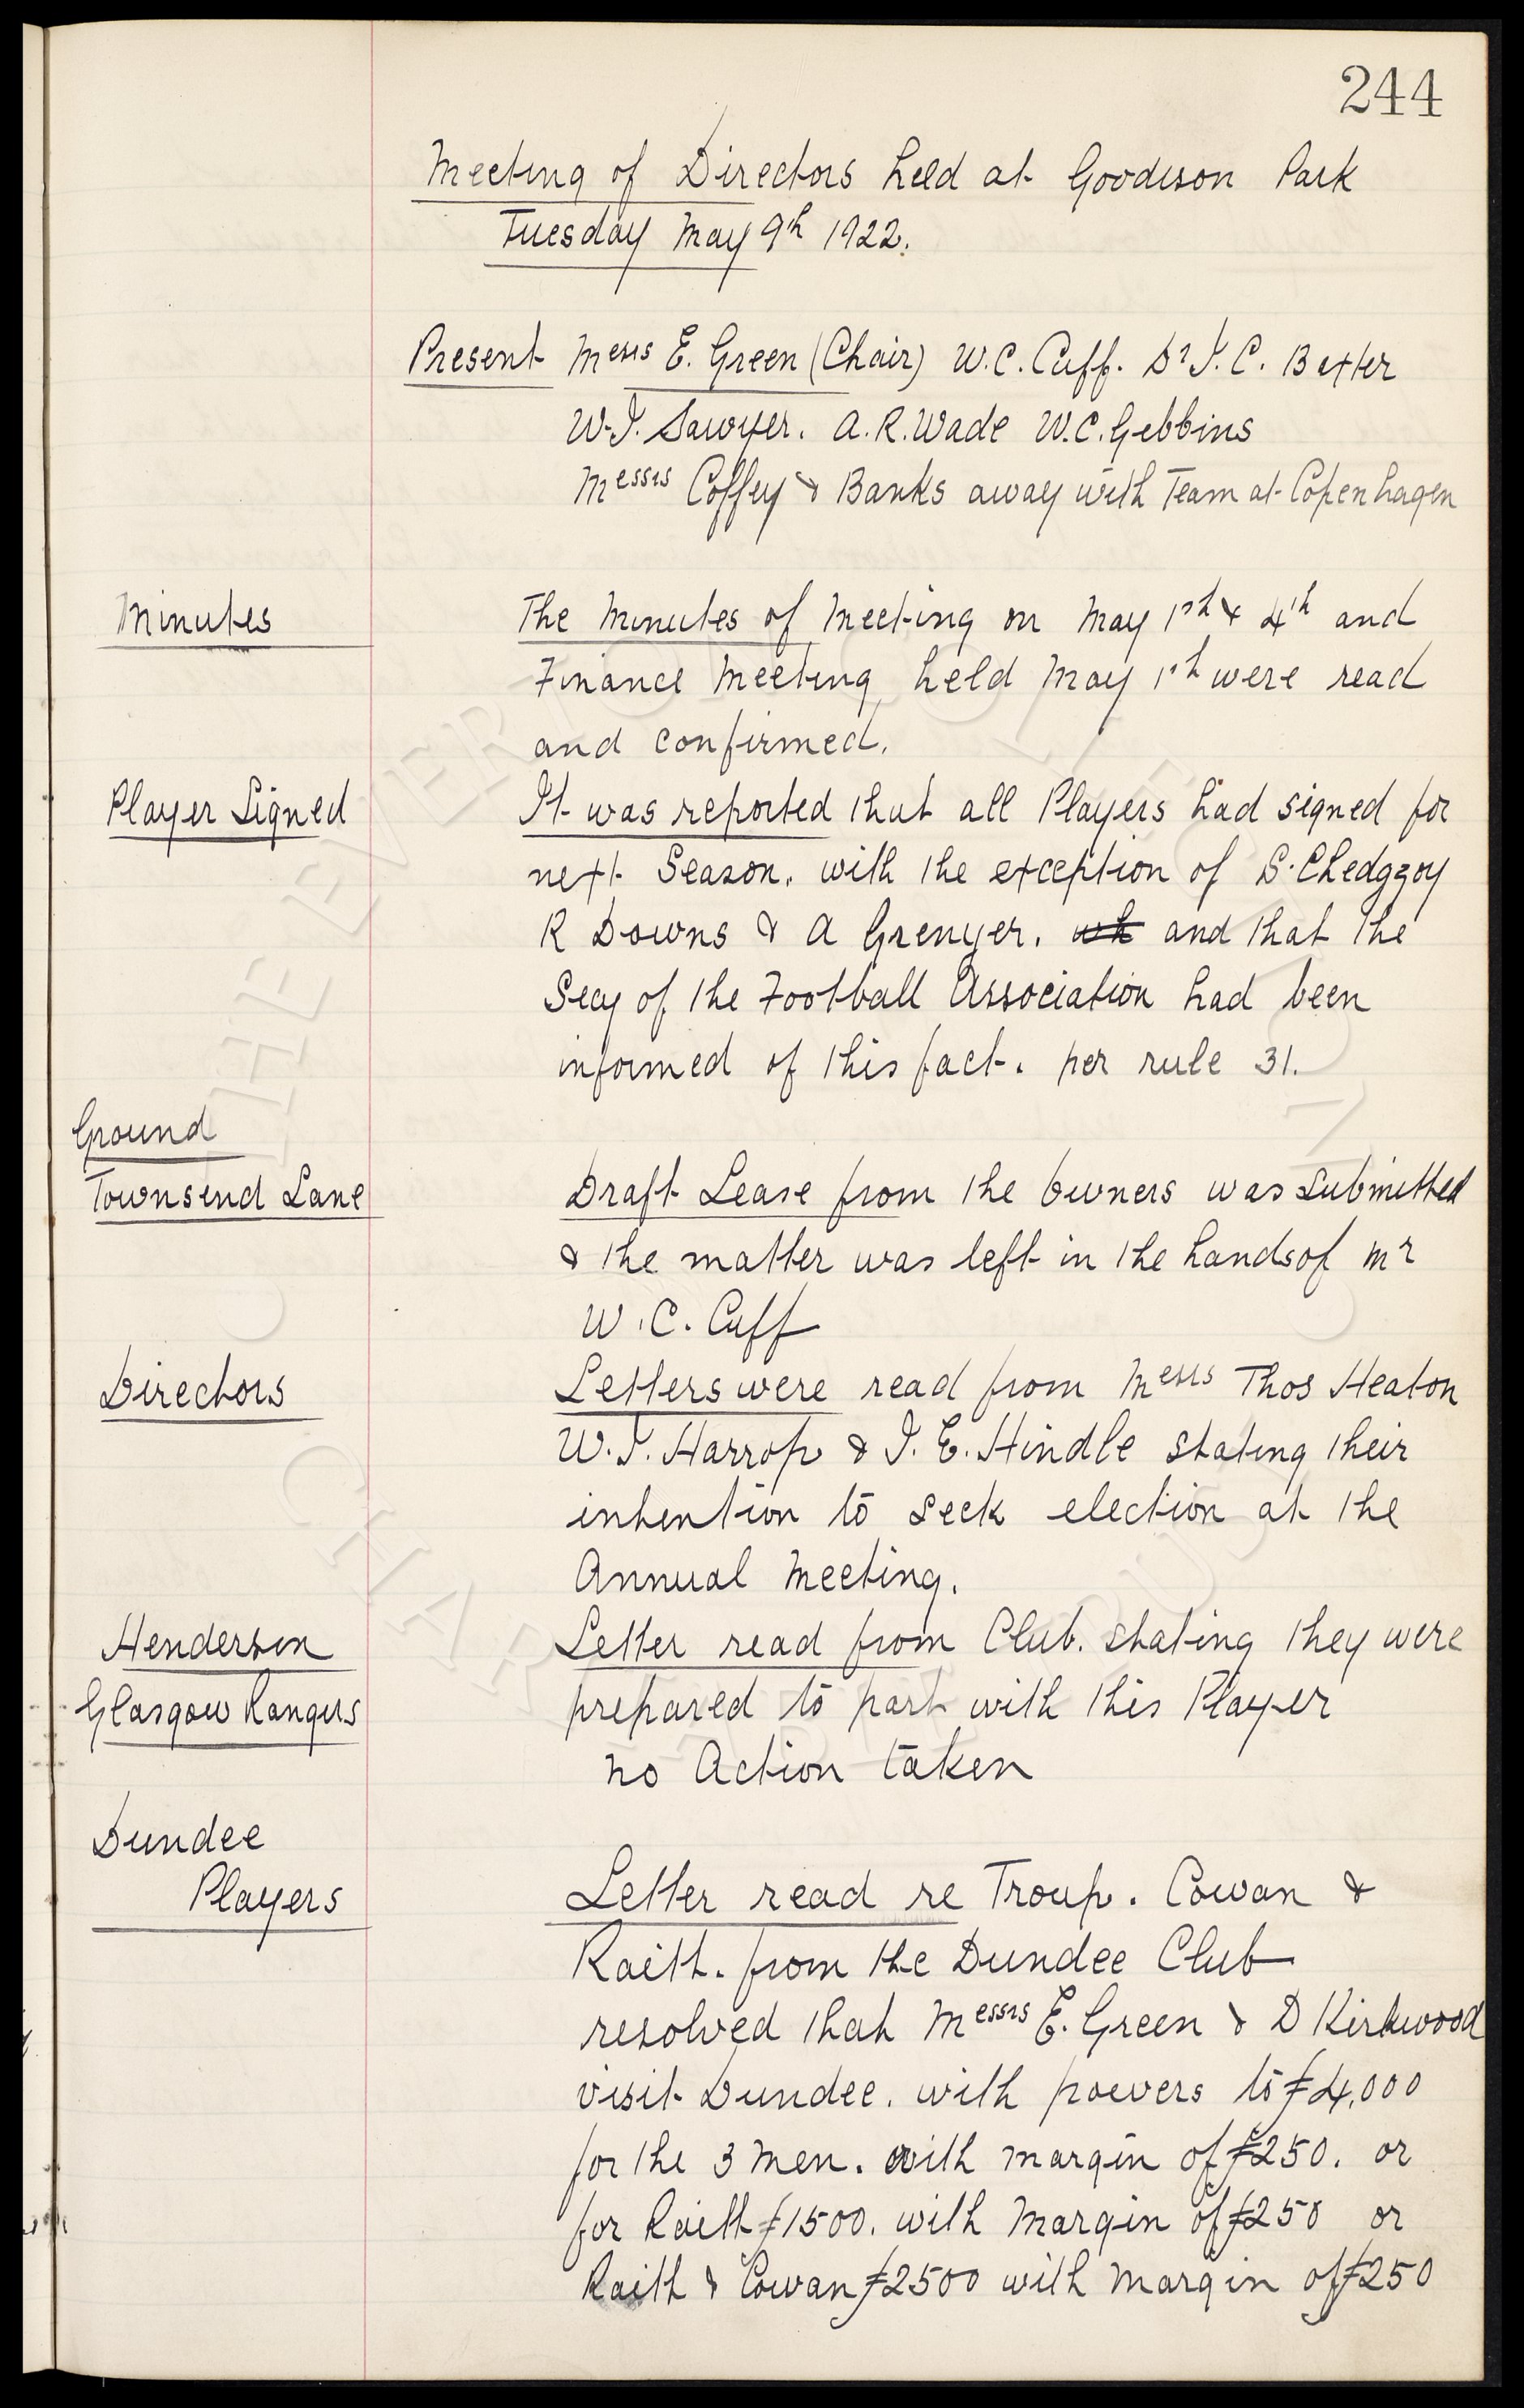 244
Meeting of Directors held at Goodison Park
Tuesday May 9th 1922.
Present Messrs E. Green (Chair) W.C. Cuff. Dr J. C. Baxter
W.J. Sawyer. A.R. Wade W.C. Gibbins
Messrs Coffey & Banks away with Team at Copenhagen
Minutes
The Minutes of Meeting on May 1st & 4th and
Finance Meeting held May 1st were read
and confirmed.
Player Signed
It was reported that all Players had signed for
next Season. with the exception of S. Chedgzoy
R Downs & A Grenyer. wh and that the
Secy of the Football Association had been
informed of this fact. per rule 31.
Ground
Townsend Lane
Draft Lease from the Owners was submitted
& the matter was left in the hands of Mr
W. C. Cuff
Directors
Letters were read from Messrs Thos Heaton
W.J. Harrop & J. E. Hindle stating their
intention to seek election at the
Annual Meeting.
Henderson
Glasgow Rangers
Letter read from Club. stating they were
prepared to part with this Player
no Action taken
Dundee
Players
Letter read re Troup. Cowan &
Raith. from the Dundee Club
resolved that Messrs E. Green & D Kirkwood
visit Dundee. with powers to £4,000
for the 3 men. with margin of £250. or
for Raith £1500. with margin of £250 or
Raith & Cowan £2500 with margin of £250